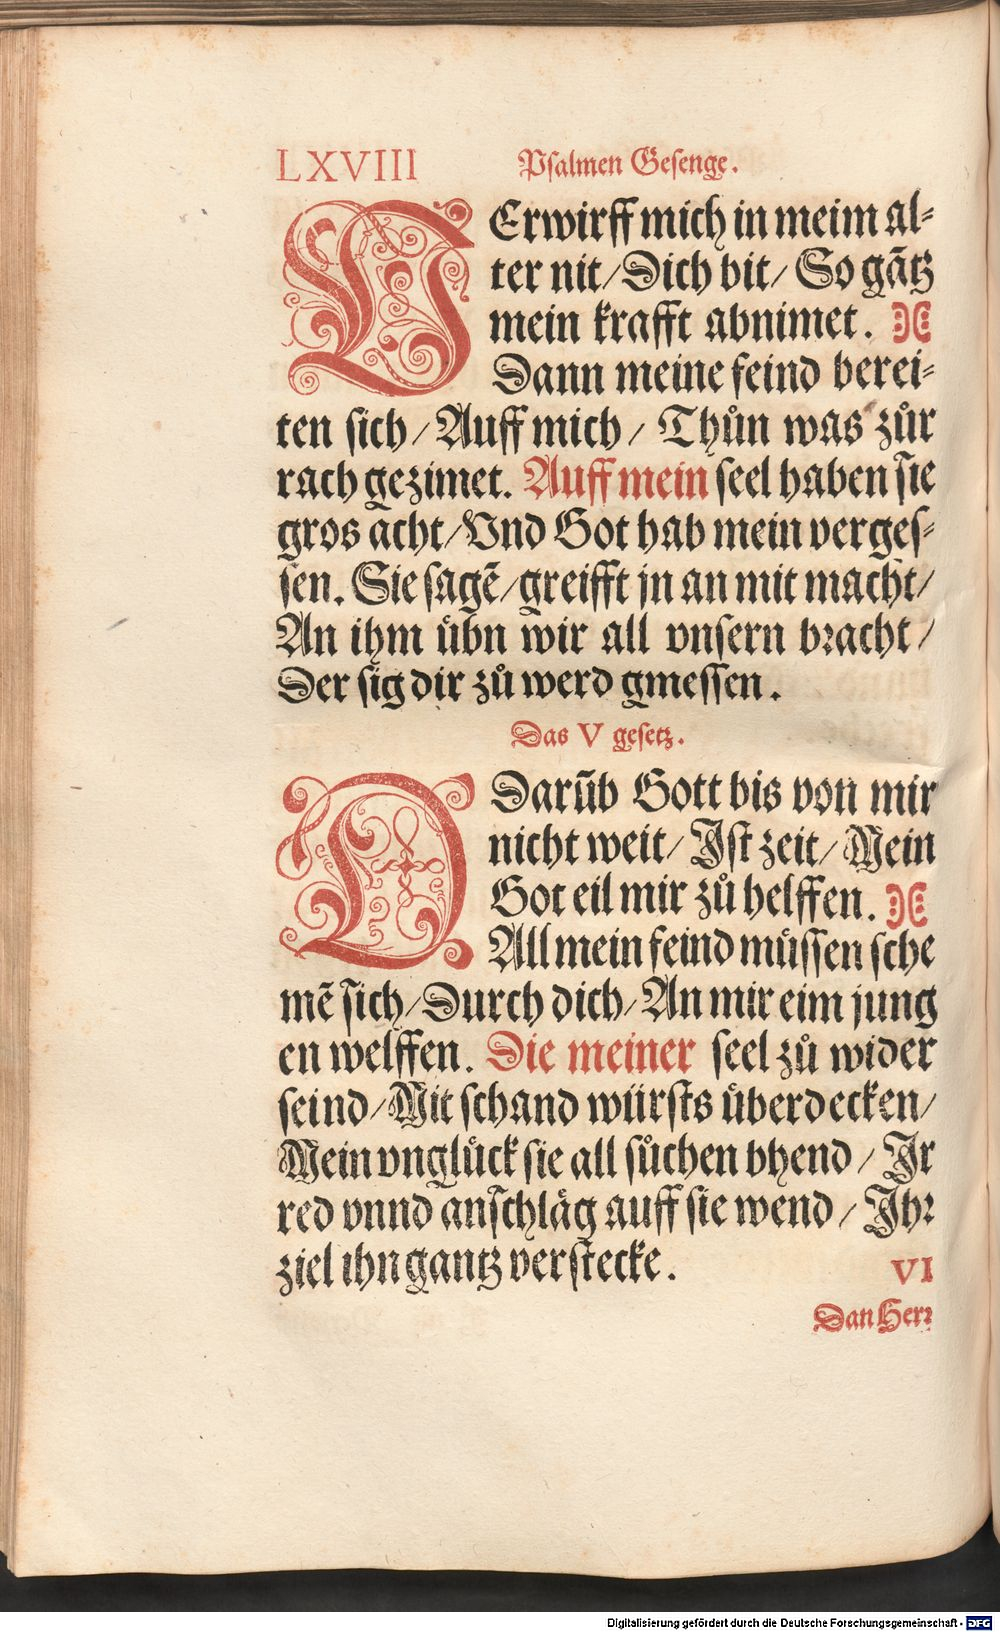 LXVIII Psalmen Gesenge.
VErwirff mich in meim al⸗
ter nit/ Dich bit/ So gātz
mein krafft abnimet.
Dann meine feind berei⸗
ten sich/ Auff mich/ Thůn was zůr
rach gezimet. Auff mein seel haben sie
gros acht/ Vnd Got hab mein verges⸗
sen. Sie sagē/ greifft jn an mit macht/
An ihm uͤbn wir all vnsern bracht/
Der sig dir zů werd gmessen.
Das V gesetz.
DDarūb Gott bis von mir
nicht weit/ Ist zeit/ Mein
Got eil mir zů helffen.
All mein feind muͤssen sche
mē sich/ Durch dich/ An mir eim jung
en welffen. Die meiner seel zů wider
seind/ Mit schand würsts uͤberdecken/
Mein vngluͤck sie all sůchen bhend/ Ir
red vnnd anschlaͤg auff sie wend/ Ihr
ziel ihn gantz verstecke.
VI
Dan Herr
Digitalisierung gefördert durch die Deutsche Forschungsgemeinschaft - DFG